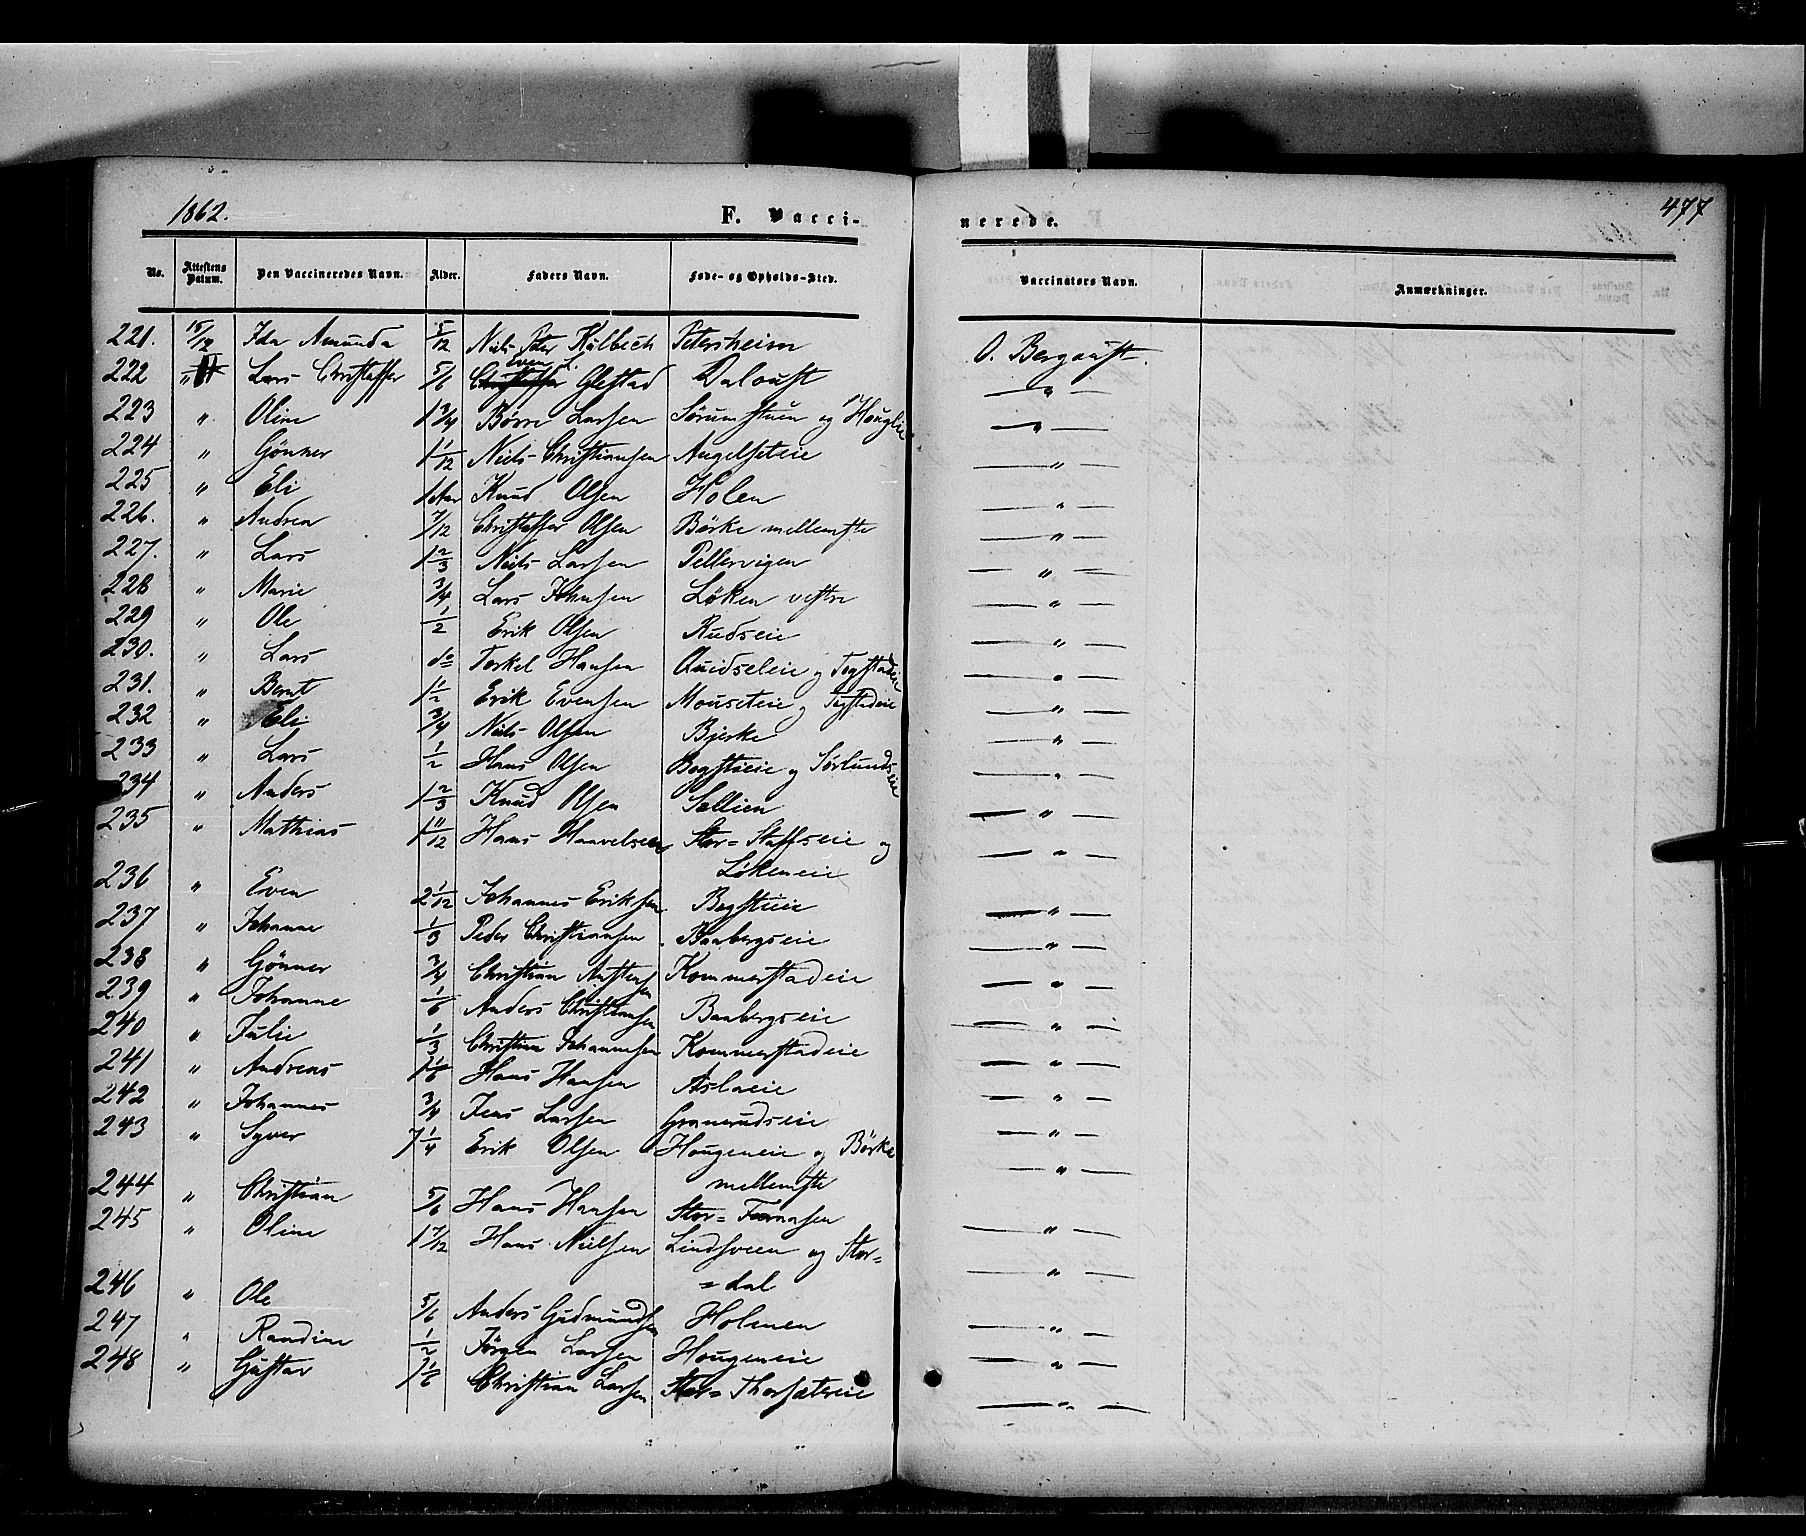 1862. F. Vacci- nerede. 477
No. Attestens Datum. Den Vaccineredes Navn. Alder. Faders Navn. Føde- og Opholds-Sted. Vaccinators Navn. Anmærkninger.
221. 15/12 Ida Amunda 5/12 Niels Peter Kulbech Petersheim O. Bergqvist.
Even
222 " Lars Christoffer 5/6 Christoffer Glestad Daloust — " —
223 " Oline 1 3/4 Børre Larsen Sörumstuen og Houglie — " —
224 " Gönner 1 1/12 Niels Christiansen Angelseteie — " —
225 " Eli 1 Aar Knud Olsen Holen — " —
226. " Andrea 7/12 Christoffer Olsen Börke mellemste — " —
227. " Lars 1 2/3 Niels Larsen Pellervigen — " —
228 " Marie 3/4 Lars Johnsen Løken vestre — " —
229 " Ole 1/2 Erik Olsen Rudseie — " —
230. " Lars do Torkel Hansen Quidseleie og Togstadeie — " —
231. " Bernt 1 1/2 Erik Evensen Mouseteie og Togstadeie — " —
232 " Eli 3/4 Niels Olsen Bjerke — " —
233 " Lars 1/2 Hans Olsen Bogstueie og Sørlundseie — " —
234 " Anders 1 2/3 Knud Olsen Sællien — " —
235 " Mathias 1 11/12 Hans Haavelsen Stor= Staffseie og — " —
Løkeneie
236 " Even 2 1/12 Johannes Eriksen Bogstueie — " —
237 " Johanne 1/3 Peder Christiansen Baabergseie — " —
238 " Gönner 3/4 Christian Austensen Kommerstadeie — " —
239 " Johanne 1/6 Anders Christiansen Baabergseie — " —
240 " Julie 1/3 Christian Johannesen Kommerstadeie — " —
241 " Andreas 1 1/6 Hans Hansen Aslaeie — " —
242 " Johannes 3/4 Jens Larsen Granerudseie — " —
243 " Syver 7 1/4 Erik Olsen Hougeneie og Börke — " —
mellemste
244 " Christian 5/6 Hans Hansen Stor= Fornasen — " —
245 " Oline 1 7/12 Hans Nielsen Lindsveen og Stor= — " —
=dal
246 " Ole 5/6 Anders Gudmundsen Holmen — " —
247 " Randine 1/2 Jörgen Larsen Hougeneie — " —
248 " Gustav 1 1/6 Christian Larsen Stor= Thorsætereie — " —